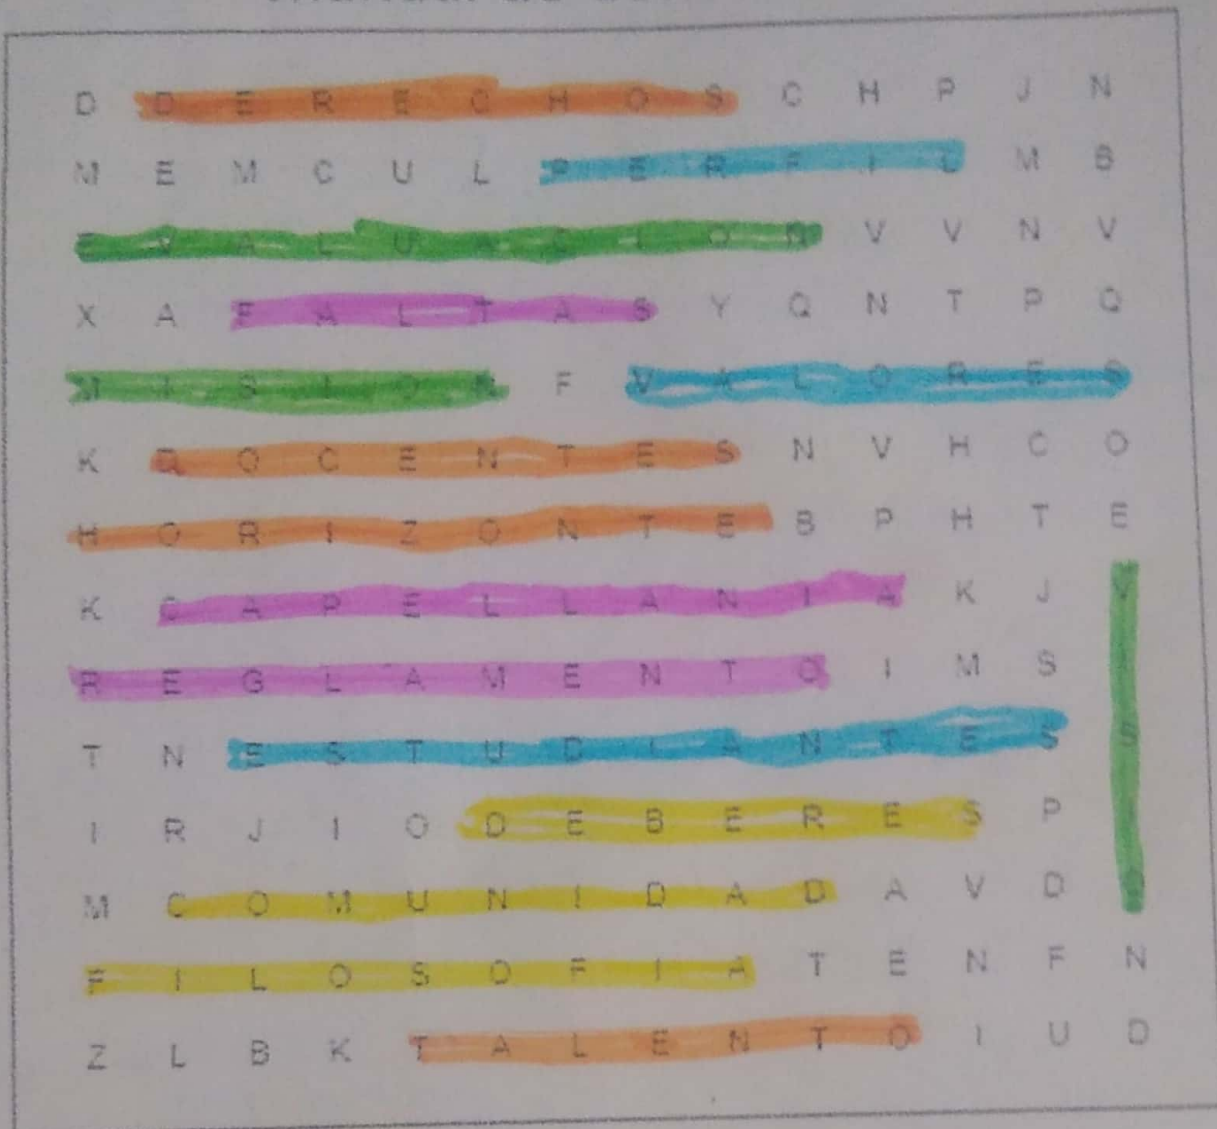 D D E R E C H O S C H P J N
M E M C U L P E R F I L M B
E V A L U A C I O N V V N V
X A F A L T A S Y Q N T P Q
M I S I O N F V A L O R E S
K D O C E N T E S N V H C O
H O R I Z O N T E B P H T E
K C A P E L L A N I A K J V
R E G L A M E N T O I M S I
T N E S T U D I A N T E S S
I R J I O D E B E R E S P I
M C O M U N I D A D A V D O
F I L O S O F I A T E N F N
Z L B K T A L E N T O I U D